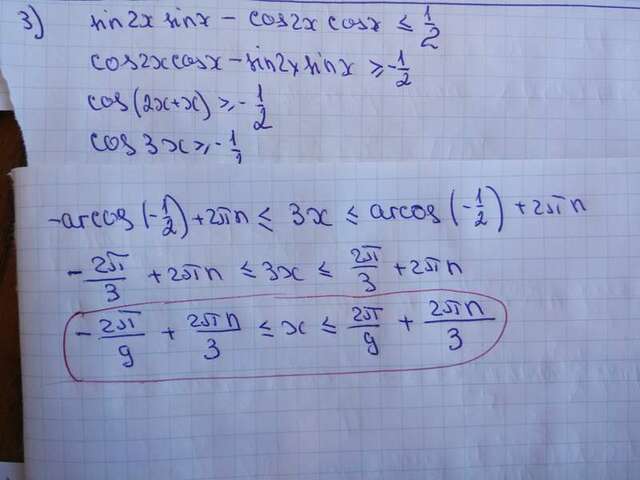 3) sin2x sinx - cos2x cosx ≤ 1/2
cos2x cosx - sin2x sinx ≥ -1/2
cos(2x+x) ≥ -1/2
cos 3x ≥ -1/2
-arccos(-1/2) + 2πn ≤ 3x ≤ arccos(-1/2) + 2πn
-2π/3 + 2πn ≤ 3x ≤ 2π/3 + 2πn
-2π/9 + 2πn/3 ≤ x ≤ 2π/9 + 2πn/3